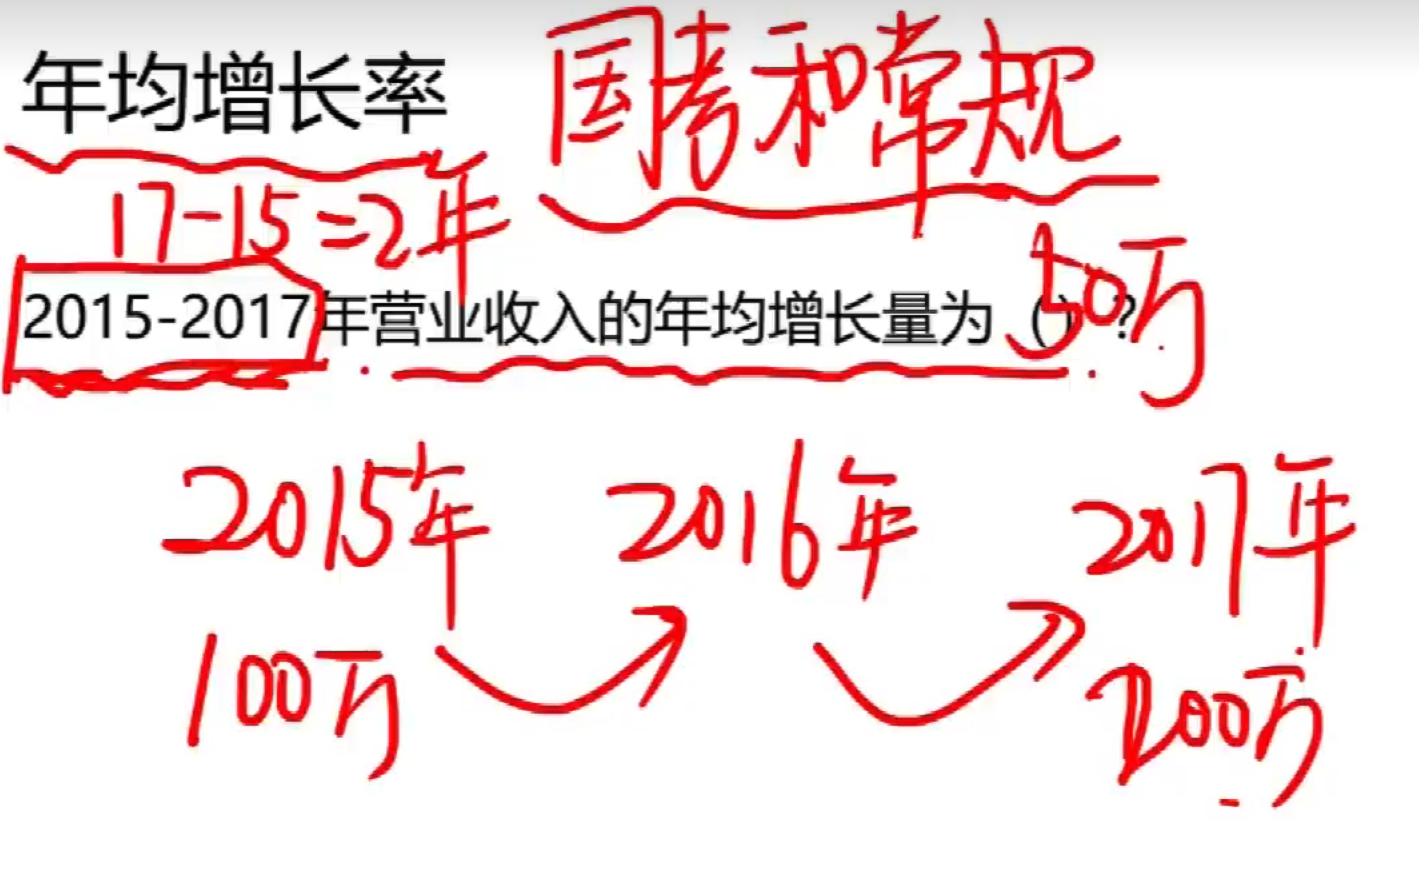 年均增长率 国考和常规
17-15=2年
2015-2017年营业收入的年均增长量为（）？ 50万
2015年 2016年 2017年
100万 200万